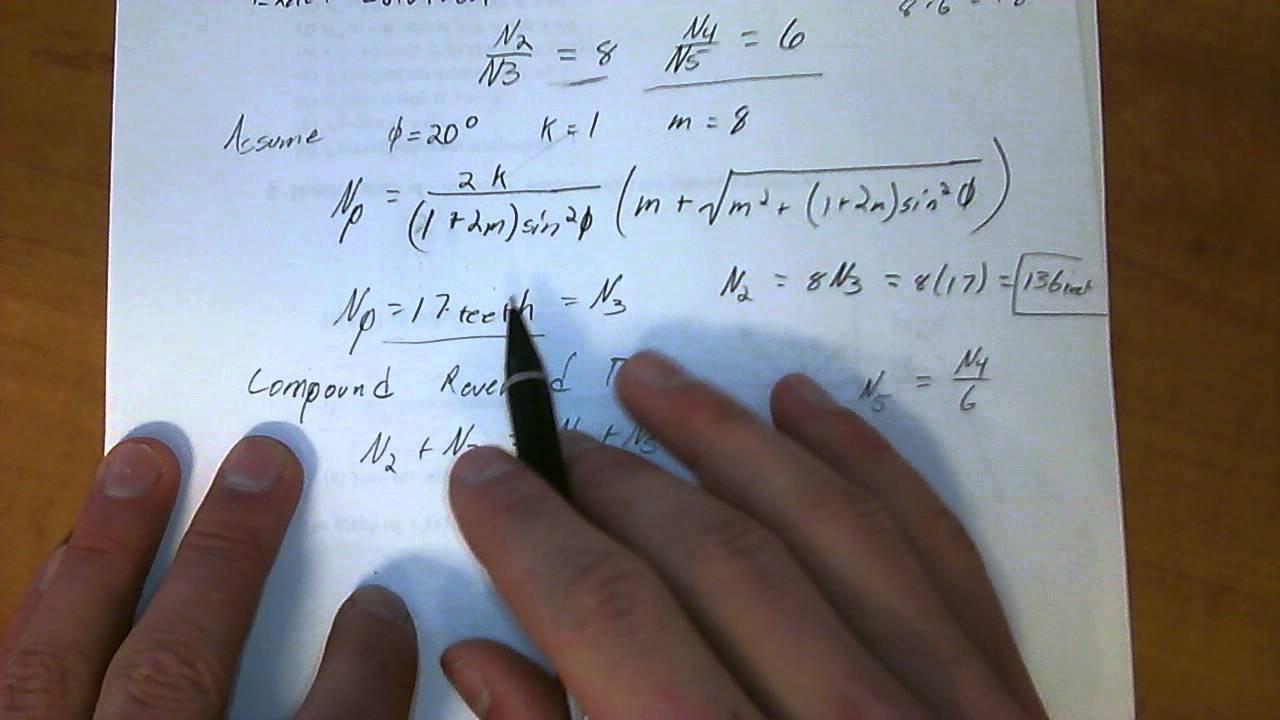 N2/N3 = 8 N4/N5 = 6
Assume φ = 20° k = 1 m = 8
Np = 2k/((1+2m)sin²φ) (m + √(m² + (1+2m)sin²φ))
Np = 17 teeth = N3 N2 = 8N3 = 8(17) = 136 teeth
Compound N5 = N4/6
N2 + + N5